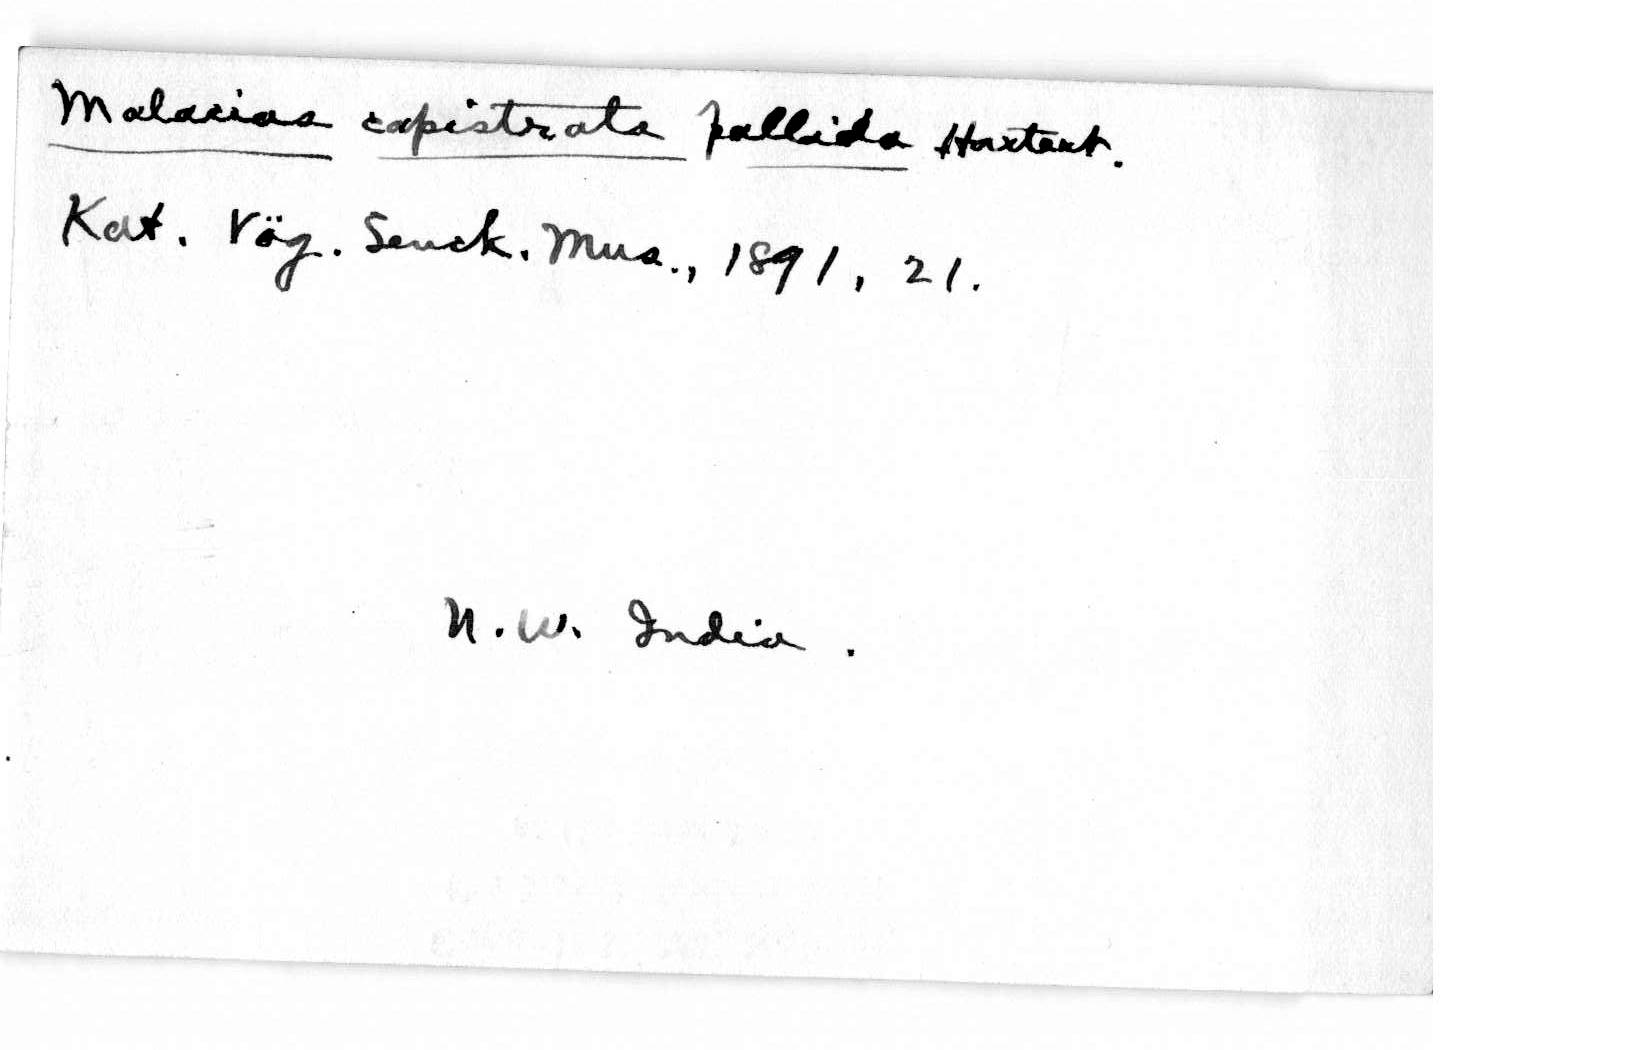 Malacias capistrata pallida Hartert.
Kat. Vög. Senck. Mus., 1891, 21.
N.W. India.